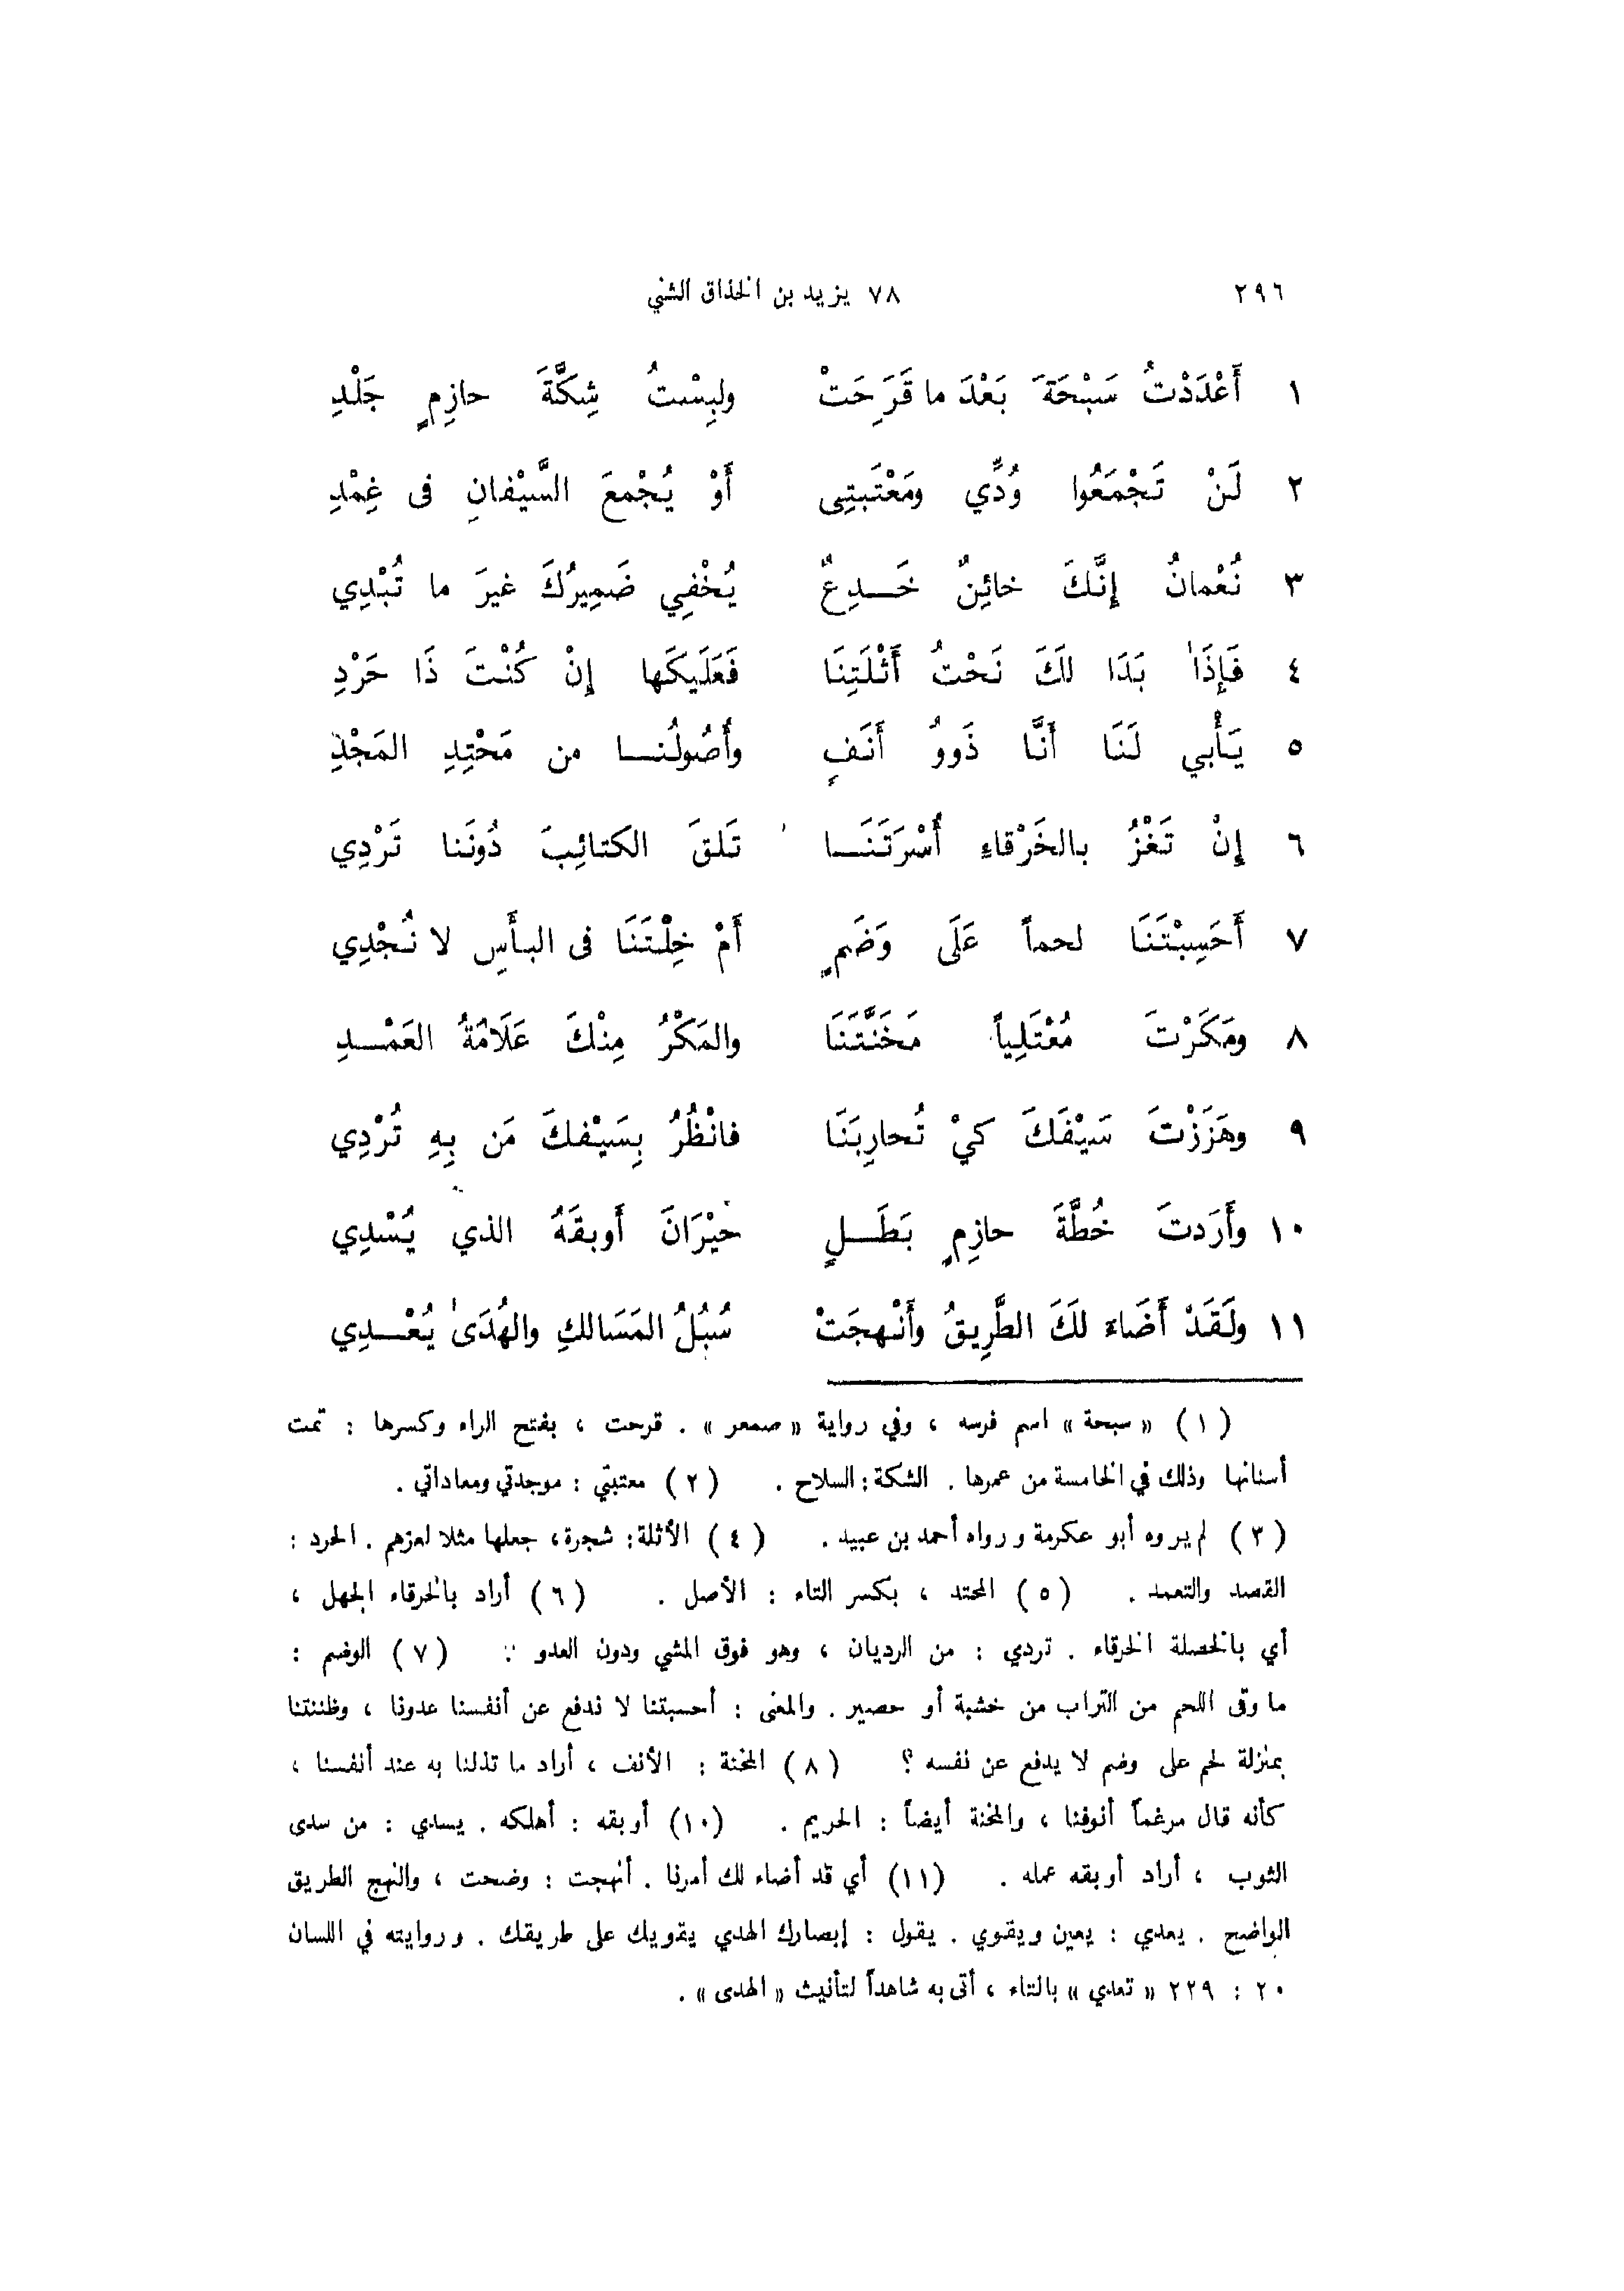 ٢٩٦ ٧٨ يزيد بن الخذاق الشني
١ أَعْدَدْتُ سَبْحَةَ بَعْدَ ما قَرَِحَتْ ولبِسْتُ شِكَّةَ حازِمٍ جَلْدِ
٢ لَنْ تَجْمَعُوا وُدِّي ومَعْتَبتِى أَوْ يُجْمعَ السَّيْفانِ فى غِمْدِ
٣ نُعْمانُ إِنَّكَ خائِنٌ خَدِعٌ يُخْفِي ضَمِيرُكَ غيرَ ما تُبْدِي
٤ فَإِذَا بَدَا لَكَ نَحْتُ أَثْلَتِنَا فَعَلَيكَها إِنْ كُنْتَ ذَا حَرْدِ
٥ يَأْبي لَنَا أَنَّا ذَووُ أَنَفٍ وأُصُولُنا من مَحْتِدِ المَجْدِ
٦ إِنْ تَغْزُ بالخَرْقاءِ أُسْرَتَنَا تَلقَ الكتائِبَ دُونَنا تَرْدِي
٧ أَحَسِبْتَنَا لحماً عَلَى وَضَمٍ أَمْ خِلْتَنَا فى البأسِ لا نُجْدِي
٨ ومَكَرْتَ مُعْتَلِياً مَخَنَّتَنَا والمَكْرُ مِنْكَ عَلَامَةُ العَمْدِ
٩ وهَزَزْتَ سَيْفَكَ كيْ تُحارِبَنَا فانْظُرْ بِسَيْفكَ مَن بِهِ تُرْدِي
١٠ وأَرَدتَ خُطَّةَ حازِمٍ بَطَلٍ حَيْرَانَ أَوبقَهُ الذي يُسْدِي
١١ ولَقَدْ أَضَاءَ لَكَ الطَّرِيقُ وأَنْهجَتْ سُبُلُ المَسَالكِ والهُدَىٰ يُعْدِي
(١) «سبحة» اسم فرسه ، وفي رواية «صمعر» . قرحت ، بفتح الراء وكسرها : تمت
أسنانها وذلك في الخامسة من عمرها . الشكة : السلاح . (٢) معتبتي : موجدتي ومعاداتي .
(٣) لم يروه أبو عكرمة ورواه أحمد بن عبيد . (٤) الأثلة : شجرة، جعلها مثلا لعزهم . الحرد :
القصد والتعمد . (٥) المحتد ، بكسر التاء : الأصل . (٦) أراد بالخرقاء الجهل ،
أي بالخصلة الخرقاء . تردي : من الرديان ، وهو فوق المشي ودون العدو . (٧) الوضم :
ما وقى اللحم من التراب من خشبة أو حصير . والمعنى : أحسبتنا لا ندفع عن أنفسنا عدونا ، وظننتنا
بمنزلة لحم على وضم لا يدفع عن نفسه ؟ (٨) المخنة : الأنف ، أراد ما تذلنا به عند أنفسنا ،
كأنه قال مرغماً أنوفنا ، والمخنة أيضاً : الحريم . (١٠) أوبقه : أهلكه . يسدي : من سدى
الثوب ، أراد أوبقه عمله . (١١) أي قد أضاء لك أمرنا . أنهجت : وضحت ، والنهج الطريق
الواضح . يعدي : يعين ويقوي . يقول : إبصارك الهدي يقويك على طريقك . وروايته في اللسان
٢٠ : ٢٢٩ «تعدي» بالتاء ، أتى به شاهداً لتأنيث «الهدى» .